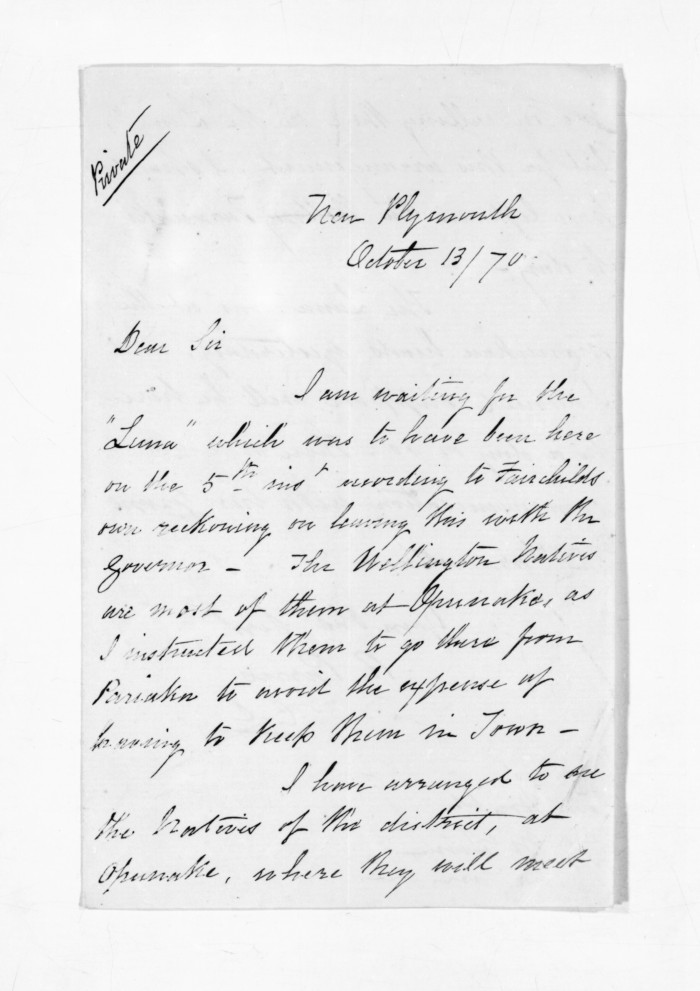 Private
New Plymouth
October 13/70.
Dear Sir
I am waiting for the
"Luna" which was to have been here
on the 5th inst according to Fairchilds
own reckoning on leaving this with the
Governor — The Wellington Natives
are most of them at Opunake, as
I instructed them to go there from
Pariaka to avoid the expense of
having to keep them in Town —
I have arranged to see
the Natives of the district, at
Opunake, where they will meet